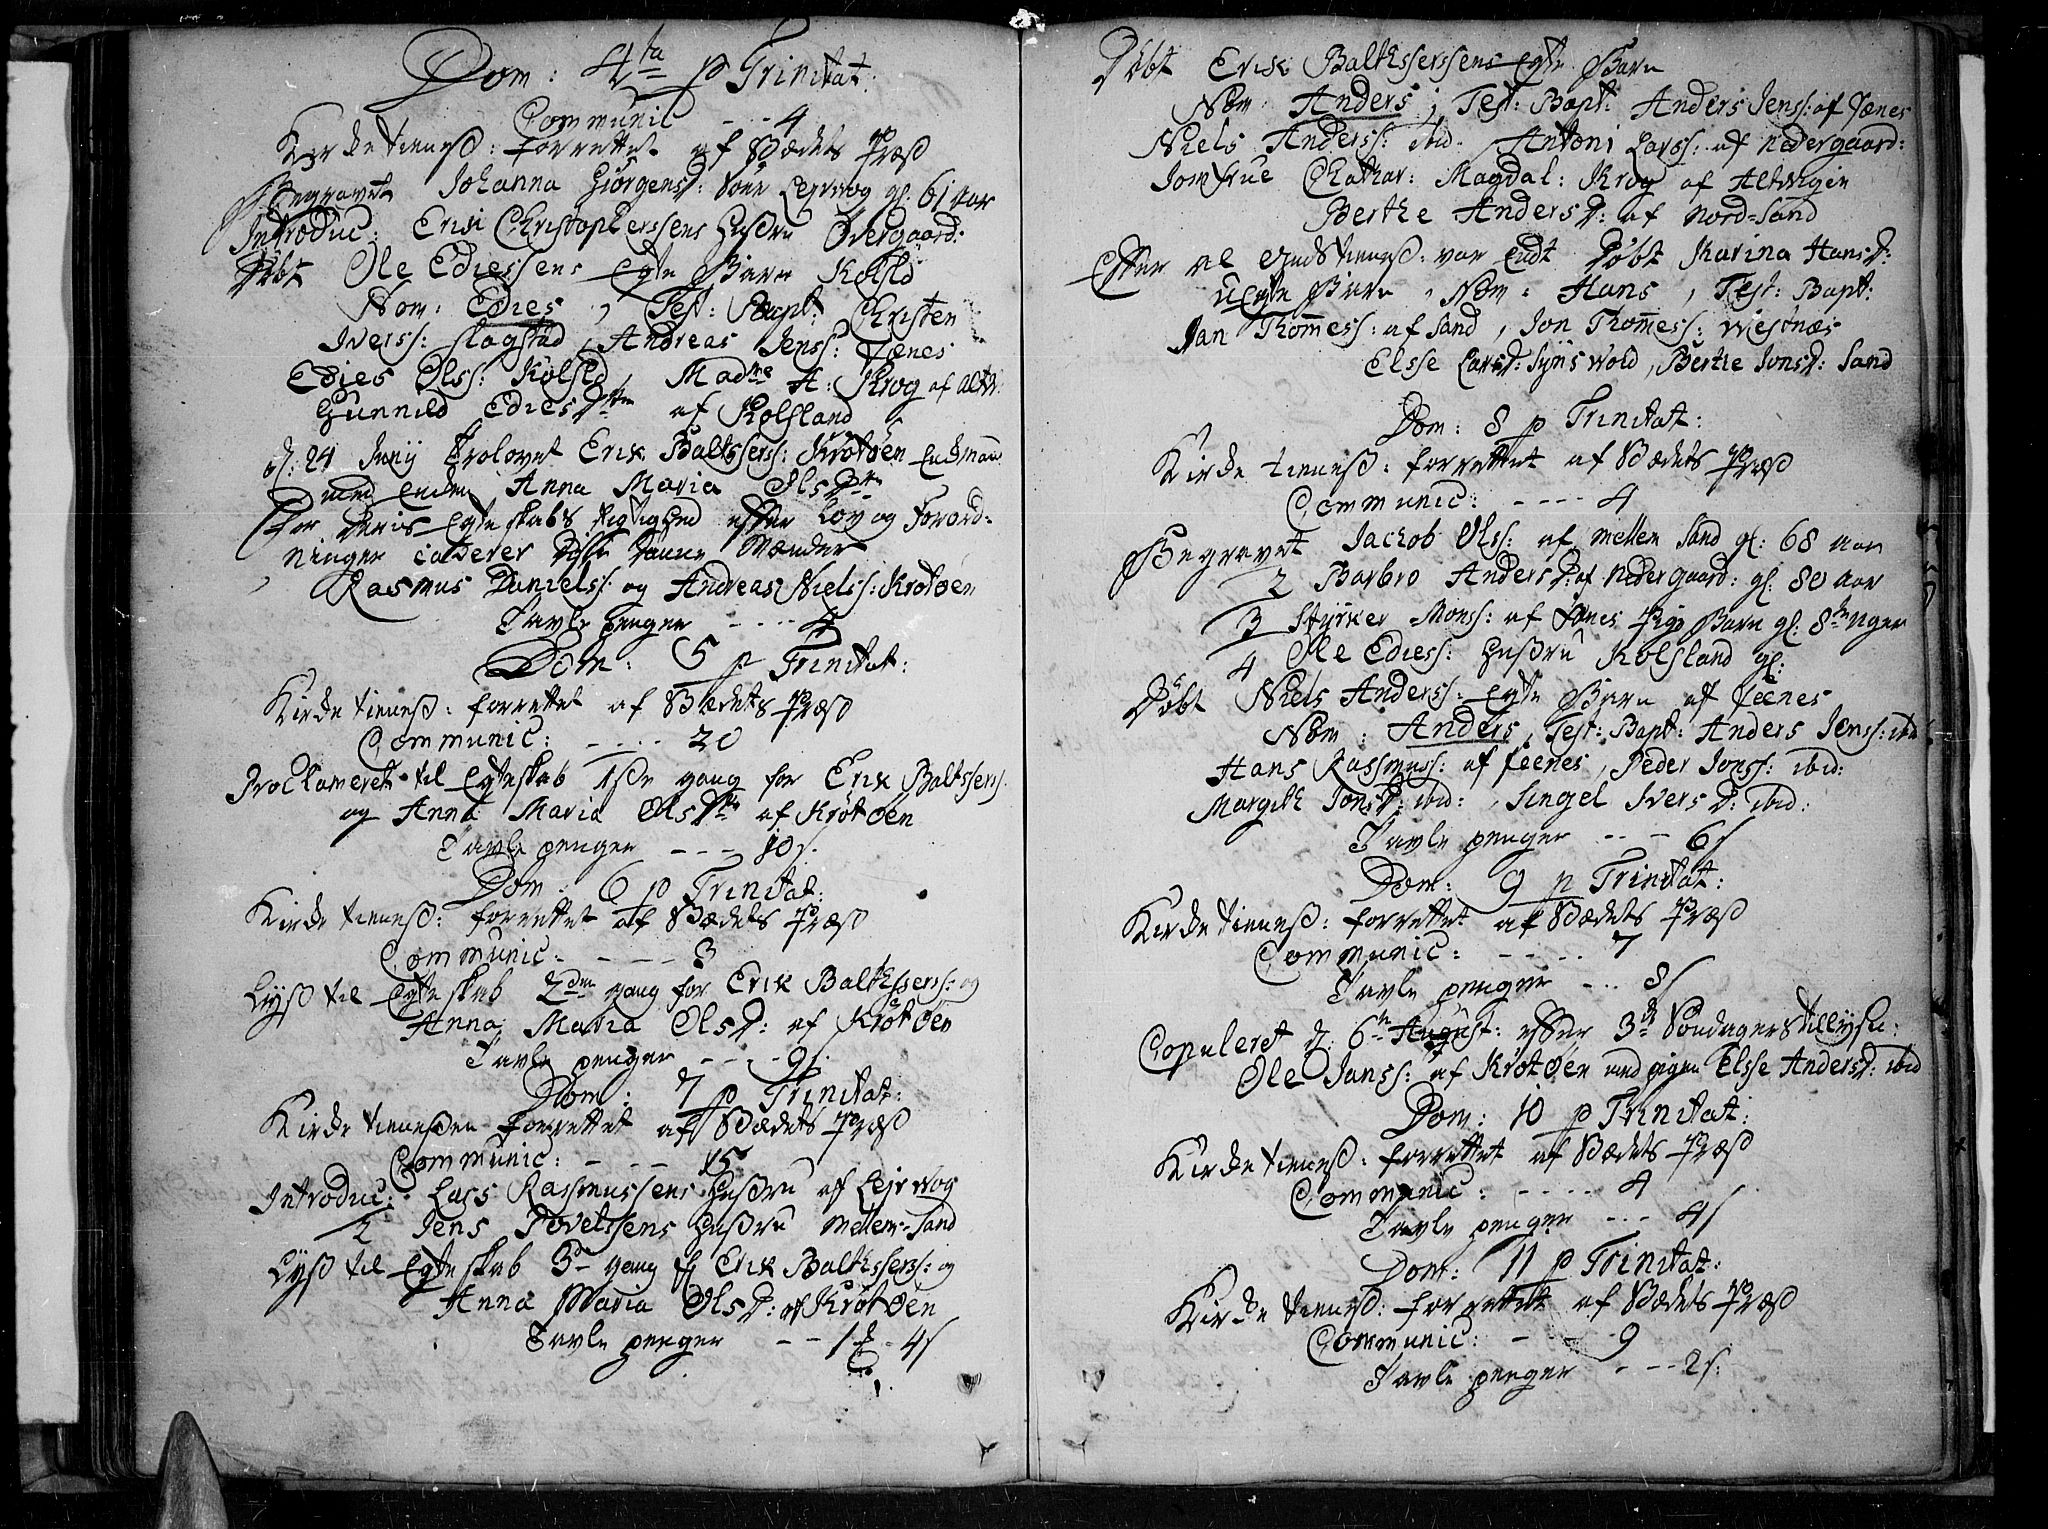 Dom: 4ta p Trinitat:
Communic --- 4
Kircke tienesß: forrettet af Stædets Præst
Begravet Johanna Giörgensd: Leirvog gl: 61 aar
Introduc: Erik Christophersens Hustru Overgaard:
Döbt Ole Ediessens Egte Barn Kolsld
Nom: Edies, Test: Bapt: Christen
Iverss: slagstad, Andreas Jenss: Fænes
Edies Olss: Kolsld, Madme A: Krog af altv:
Gunnild Ediesdttr af Kolsland
d: 24 Junij Trolovet Erik Baltssers: Krötöen Enckmand
med Enken Anna Maria Olsdttr
For deris Egteskabs rigtighed efter Lov og Forord-
ninger caverer disse Danne Mænder
Rasmus Daniels: og Andreas Niels: Krötöen
Tavle penger --- 4
Dom: 5 p Trinitat:
Kircke tienesß: forrettet af Stædets Præst
Communic: ---- 20
Proclameret til Egteskab 1ste gang for Erik Baltssers:
og Anna Maria Olsdttr af Krötöen
Tavle penger --- 10 s:
Dom: 6 p Trinitat:
Kircke tienesß: forrettet af Stædets Præst
Communic: ---- 3
Lÿst til Egteskab 2den gang for Erik Balthssers: og
Anna Maria Olsd: af Krötöen
Tavle penger ---- 9 s:
Dom: 7 p Trinitat:
Kircke tienesßen forrettet af Stædets Præst
Communic: --- 15
Introduc: Lars Rasmussens Hustru af Lejrwog
2 Jens Povelssens Hustru Mellem-sand
Lÿst til Egteskab 3die gang f Erik Balthssers: og
Anna Maria Olsd: af Krötöen
Tavle penger -- 1 - 4 s
Döbt Erik Balthsserssens Egte Barn
Nom: Anders, Test: Bapt: Anders Jenss: af Fænes
Niels Anderss: ibid. Antoni Larss: af Nedergaard:
Jomfrue Chathar: Magdal: Krog af Altvigen
Berthe Andersd: af Nord-sand
Efter at Gudstienesß: var Endt Döbt Karina Hansd:
uEgte Barn, Nom: Hans, Test: Bapt:
Jan Thomess: af sand, Jon Thomess: Westnæs
Elsse Larsd: Synswold, Berthe Jonsd: Sand
Dom: 8 p Trinitat:
Kircke tienesß: forrettet af Stædets Præst
Communic: ---- 4
Begravet Jachob Olss: af mellem Sand gl: 68 aar
2 Barbro Andersd: af Nedergaard: gl: 80 aar
3 Styrker Monss: af Fænes Barn gl: 8te Uger
4 Ole Ediess: Hustru Kolsland gl:
Döbt Niels Anderss: Egte Barn af feenes
Nom: Anders, Test: Bapt: Anders Jenss: ibd
Hans Rassmuss: af feenes, Peder Jonss: ibid:
Margith Jonsd: ibid:, Singel Iversd: ibid:
Tavle penger --- 6 s
Dom: 9 p Trinitat:
Kircke tienesß: forrettet af Stædets Præst
Communic: ----- 7
Tavle penger --- 8 s
Copuleret d: 6te August: efter 3de Söndagers tillysn:
Ole Janss: af Krötöen med pigen Elsse Andersd: ibid
Dom: 10 p Trinitat:
Kircke tienesß: forrettet af Stædets Præst
Communic: ---- 4
Tavle penger --- 4 s
Dom: 11 p Trinitat:
Kircke tienesß: forrettet af Stædets Præst
Communic: ---- 9
Tavle penger --- 2 s: